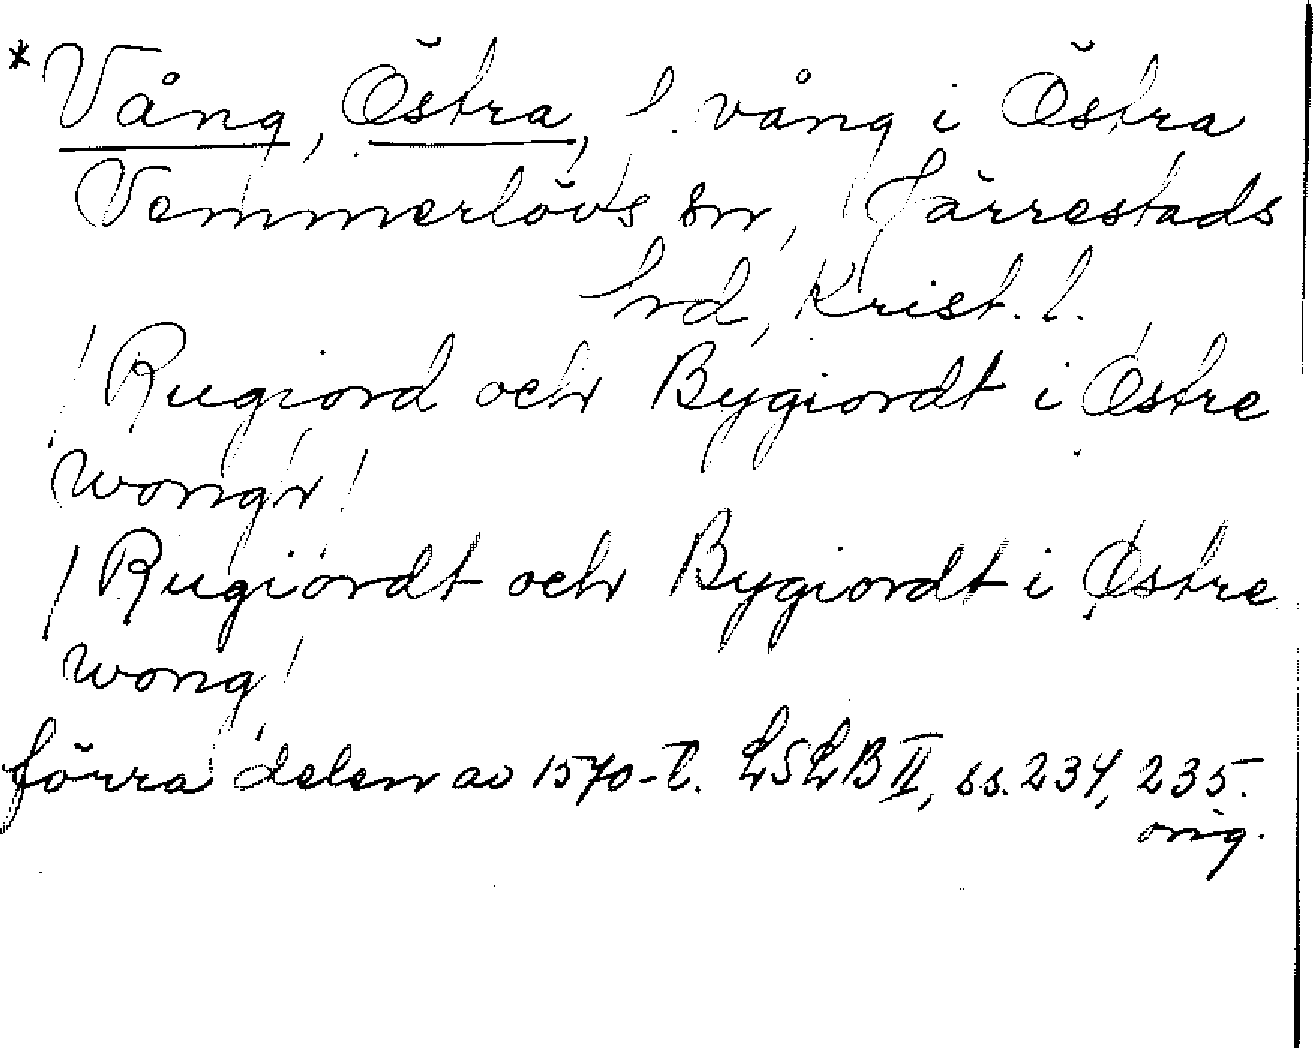 *Vång, Östra, f. vång i Östra
Vemmerlövs sn, Järrestads
hrd, Krist. l.
/Rugiord och Bygiordt i Østre
wongr/
/Rugiordt och Bygiordt i Østre
wong/
förra delen av 1570-t. LSLB II, ss. 234, 235.
orig.